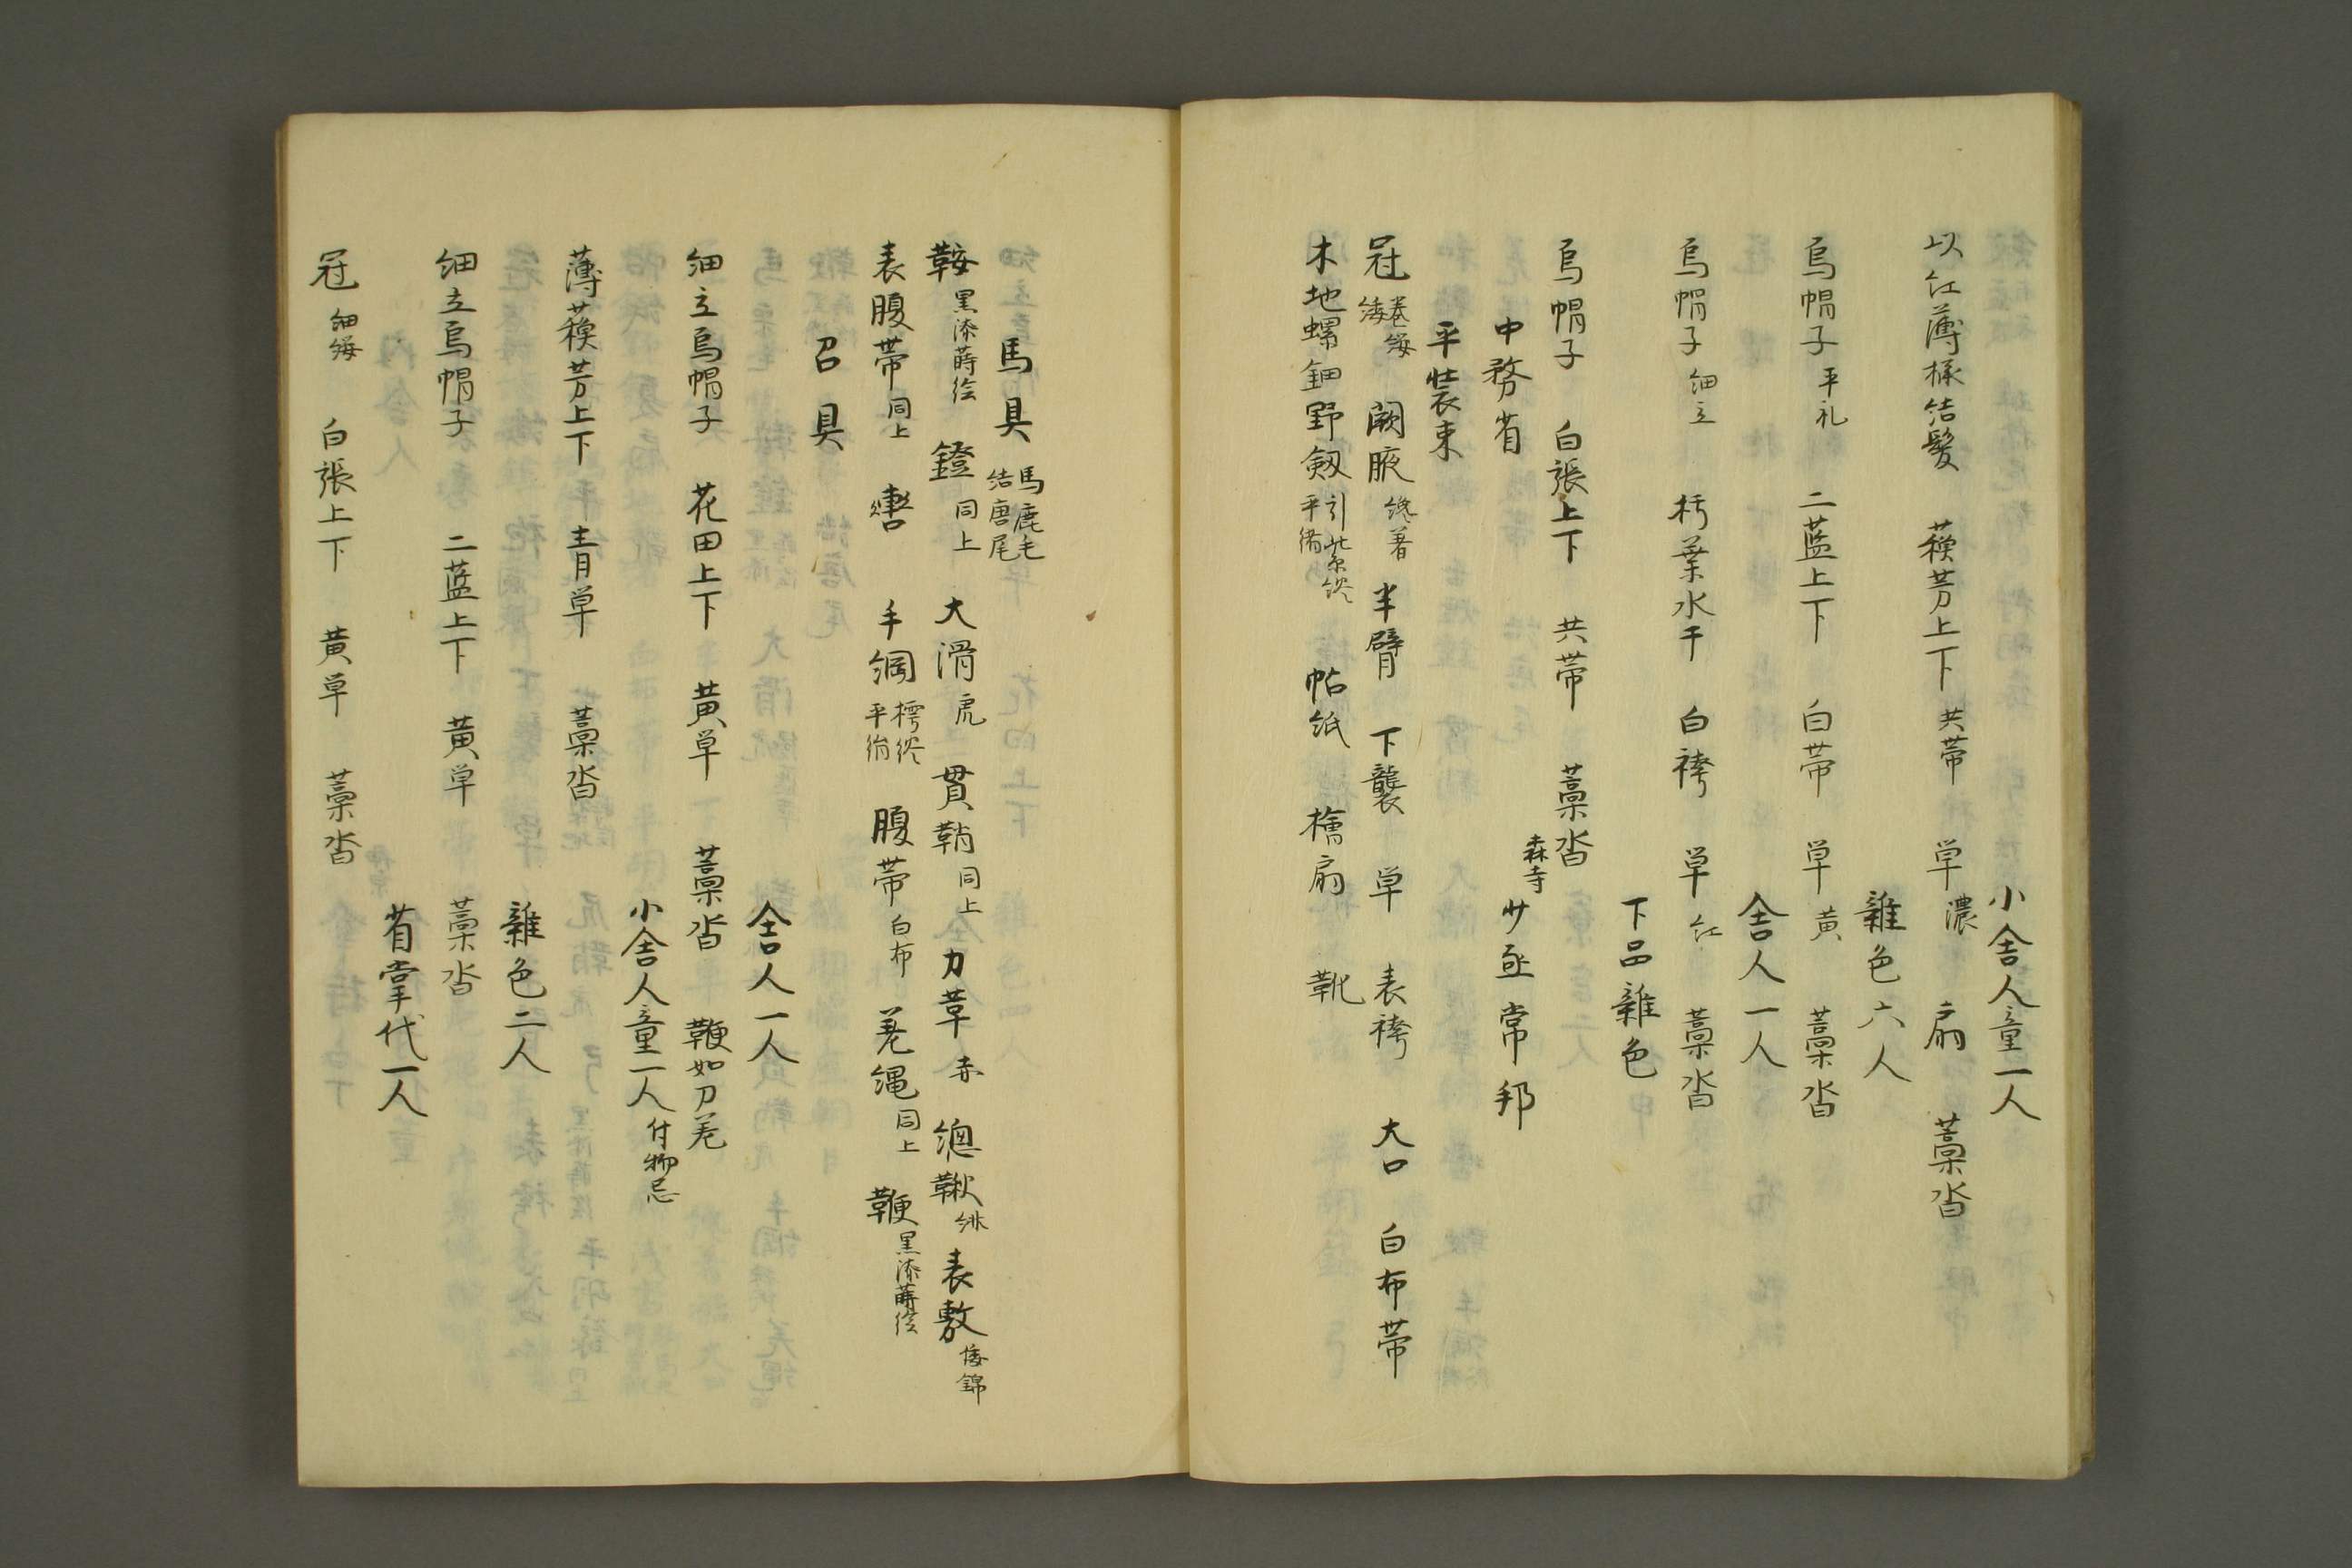 小舎人童一人
以紅薄様結髪 蘓芳上下 共帯 単 濃 扇 藁沓
雑色六人
烏帽子 平礼 二藍上下 白帯 単 黄 藁沓
舎人一人
烏帽子 細立 朽葉水干 白袴 単 紅 藁沓
下品雑色
烏帽子 白張上下 共帯 藁沓
中務省 森寺 少丞常邦
平装束
冠 巻纓 緌 闕腋 縫著 半臂 下襲 単 表袴 大口 白布帯
木地螺鈿野剱 引紫終 平緒 帖紙 檜扇 靴
馬具 馬鹿毛 結唐尾
鞍 黒漆蒔絵 鐙 同上 大滑 虎 貫鞘 同上 力革 赤 総鞦 緋 表敷 倭錦
表腹帯 同上 轡 手綱 樗終 平絎 腹帯 白布 差縄 同上 鞭 黒漆蒔絵
召具
舎人一人
細立烏帽子 花田上下 黄単 藁沓 鞭如刀差
小舎人童一人 付物忌
薄蘓芳上下 青単 藁沓
雑色二人
細立烏帽子 二藍上下 黄単 藁沓
省掌代一人
冠 細纓 白張上下 黄単 藁沓